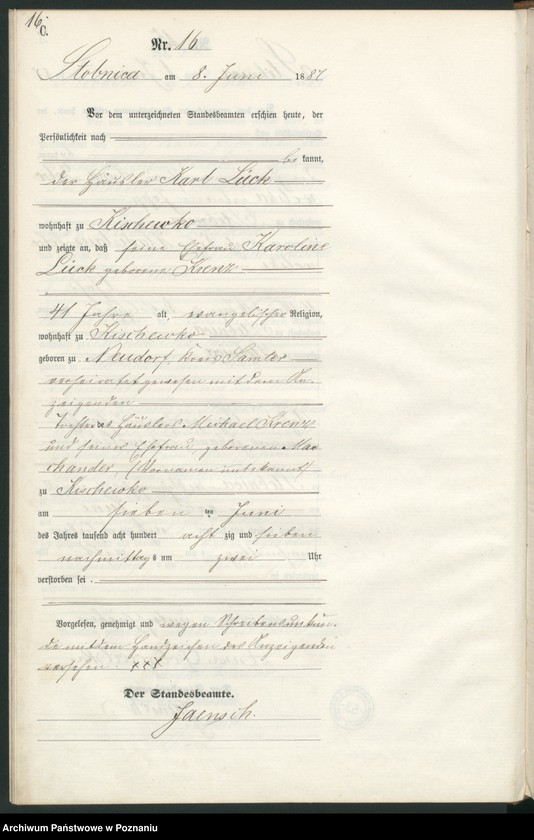 16.
C.
Nr. 16
Stobnica am 8. Juni 1887
Vor dem unterzeichneten Standesbeamten erschien heute, der
Persönlichkeit nach
be kannt,
der Häusler Karl Lück
wohnhaft zu Kischewko
und zeigte an, daß seine Ehefrau Karoline
Lück geborene Krenz
41 Jahre alt, evangelischer Religion,
wohnhaft zu Kischewko
geboren zu Neudorf, Kreis Samter
verheiratet gewesen mit dem An-
zeigenden
Tochter des Häuslers Michael Krenz
und seiner Ehefrau geborenen Mar-
chander (Vornamen unbekannt)
zu Kischewko
am sieben ten Juni
des Jahres tausend acht hundert acht zig und sieben
nachmittags um zwei Uhr
verstorben sei.
Vorgelesen, genehmigt und wegen Schreibensunkun-
de mit dem Handzeichen des Anzeigenden
versehen. xxx
Der Standesbeamte.
Jaensch.
Archiwum Państwowe w Poznaniu